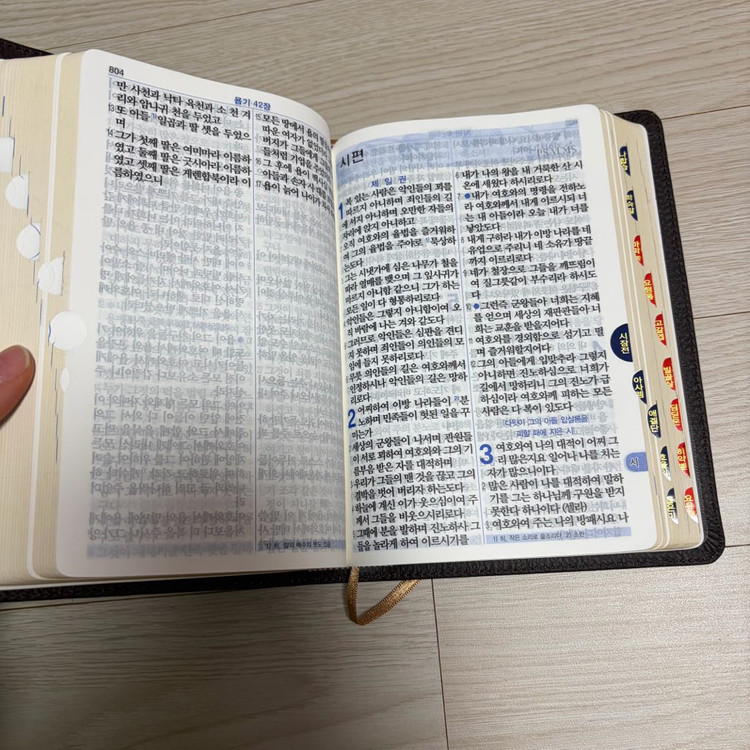 804
욥기 42장
만 사천과 낙타 육천과 소 천 겨
리와 암나귀 천을 두었고
13 또 아들 일곱과 딸 셋을 두었으
며
14 그가 첫째 딸은 여미마라 이름하
였고 둘째 딸은 긋시아라 이름하
였고 셋째 딸은 게렌합북이라 이
름하였으니
15 모든 땅에서 욥의
따운 여자가 없었
버지가 그들에게
들처럼 기업을
16 그 후에 욥이
아들과 손자 사 대
17 욥이 늙어 나이가
시편
제 일 권
1 복 있는 사람은 악인들의 꾀를
따르지 아니하며 죄인들의 길
에 서지 아니하며 오만한 자들의
자리에 앉지 아니하고
오직 여호와의 율법을 즐거워하
여 그의 율법을 주야로 묵상하
는도다
그는 시냇가에 심은 나무가 철을
따라 열매를 맺으며 그 잎사귀가
마르지 아니함 같으니 그가 하는
모든 일이 다 형통하리로다
악인들은 그렇지 아니함이여 오
직 바람에 나는 겨와 같도다
그러므로 악인들은 심판을 견디
지 못하며 죄인들이 의인들의 모
임에 들지 못하리로다
무릇 의인들의 길은 여호와께서
인정하시나 악인들의 길은 망하
리로다
2 어찌하여 이방 나라들이 분
노하며 민족들이 헛된 일을 꾸
미는가
세상의 군왕들이 나서며 관원들
이 서로 꾀하여 여호와와 그의 기
름 부음 받은 자를 대적하며
우리가 그들의 맨 것을 끊고 그의
결박을 벗어 버리자 하는도다
하늘에 계신 이가 웃으심이여 주
께서 그들을 비웃으시리로다
그 때에 분을 발하며 진노하사 그
들을 놀라게 하여 이르시기를
6 내가 나의 왕을 내 거룩한 산 시
온에 세웠다 하시리로다
7 내가 여호와의 명령을 전하노
라 여호와께서 내게 이르시되 너
는 내 아들이라 오늘 내가 너를
낳았도다
8 내게 구하라 내가 이방 나라를 네
유업으로 주리니 네 소유가 땅끝
까지 이르리로다
9 네가 철장으로 그들을 깨뜨림이
여 질그릇같이 부수리라 하시도
다
그런즉 군왕들아 너희는 지혜
를 얻으며 세상의 재판관들아 너
희는 교훈을 받을지어다
여호와를 경외함으로 섬기고 떨
며 즐거워할지어다
그의 아들에게 입맞추라 그렇지
아니하면 진노하심으로 너희가
길에서 망하리니 그의 진노가 급
하심이라 여호와께 피하는 모든
사람은 다 복이 있도다
다윗이 그의 아들 압살롬을
피할 때에 지은 시
3 여호와여 나의 대적이 어찌 그
리 많은지요 일어나 나를 치는
자가 많으니이다
많은 사람이 나를 대적하여 말하
기를 그는 하나님께 구원을 받지
못한다 하나이다 (셀라)
여호와여 주는 나의 방패시요 나
1) 히, 작은 소리로 읊조리다
시잠전
아사렘
애겔단
시